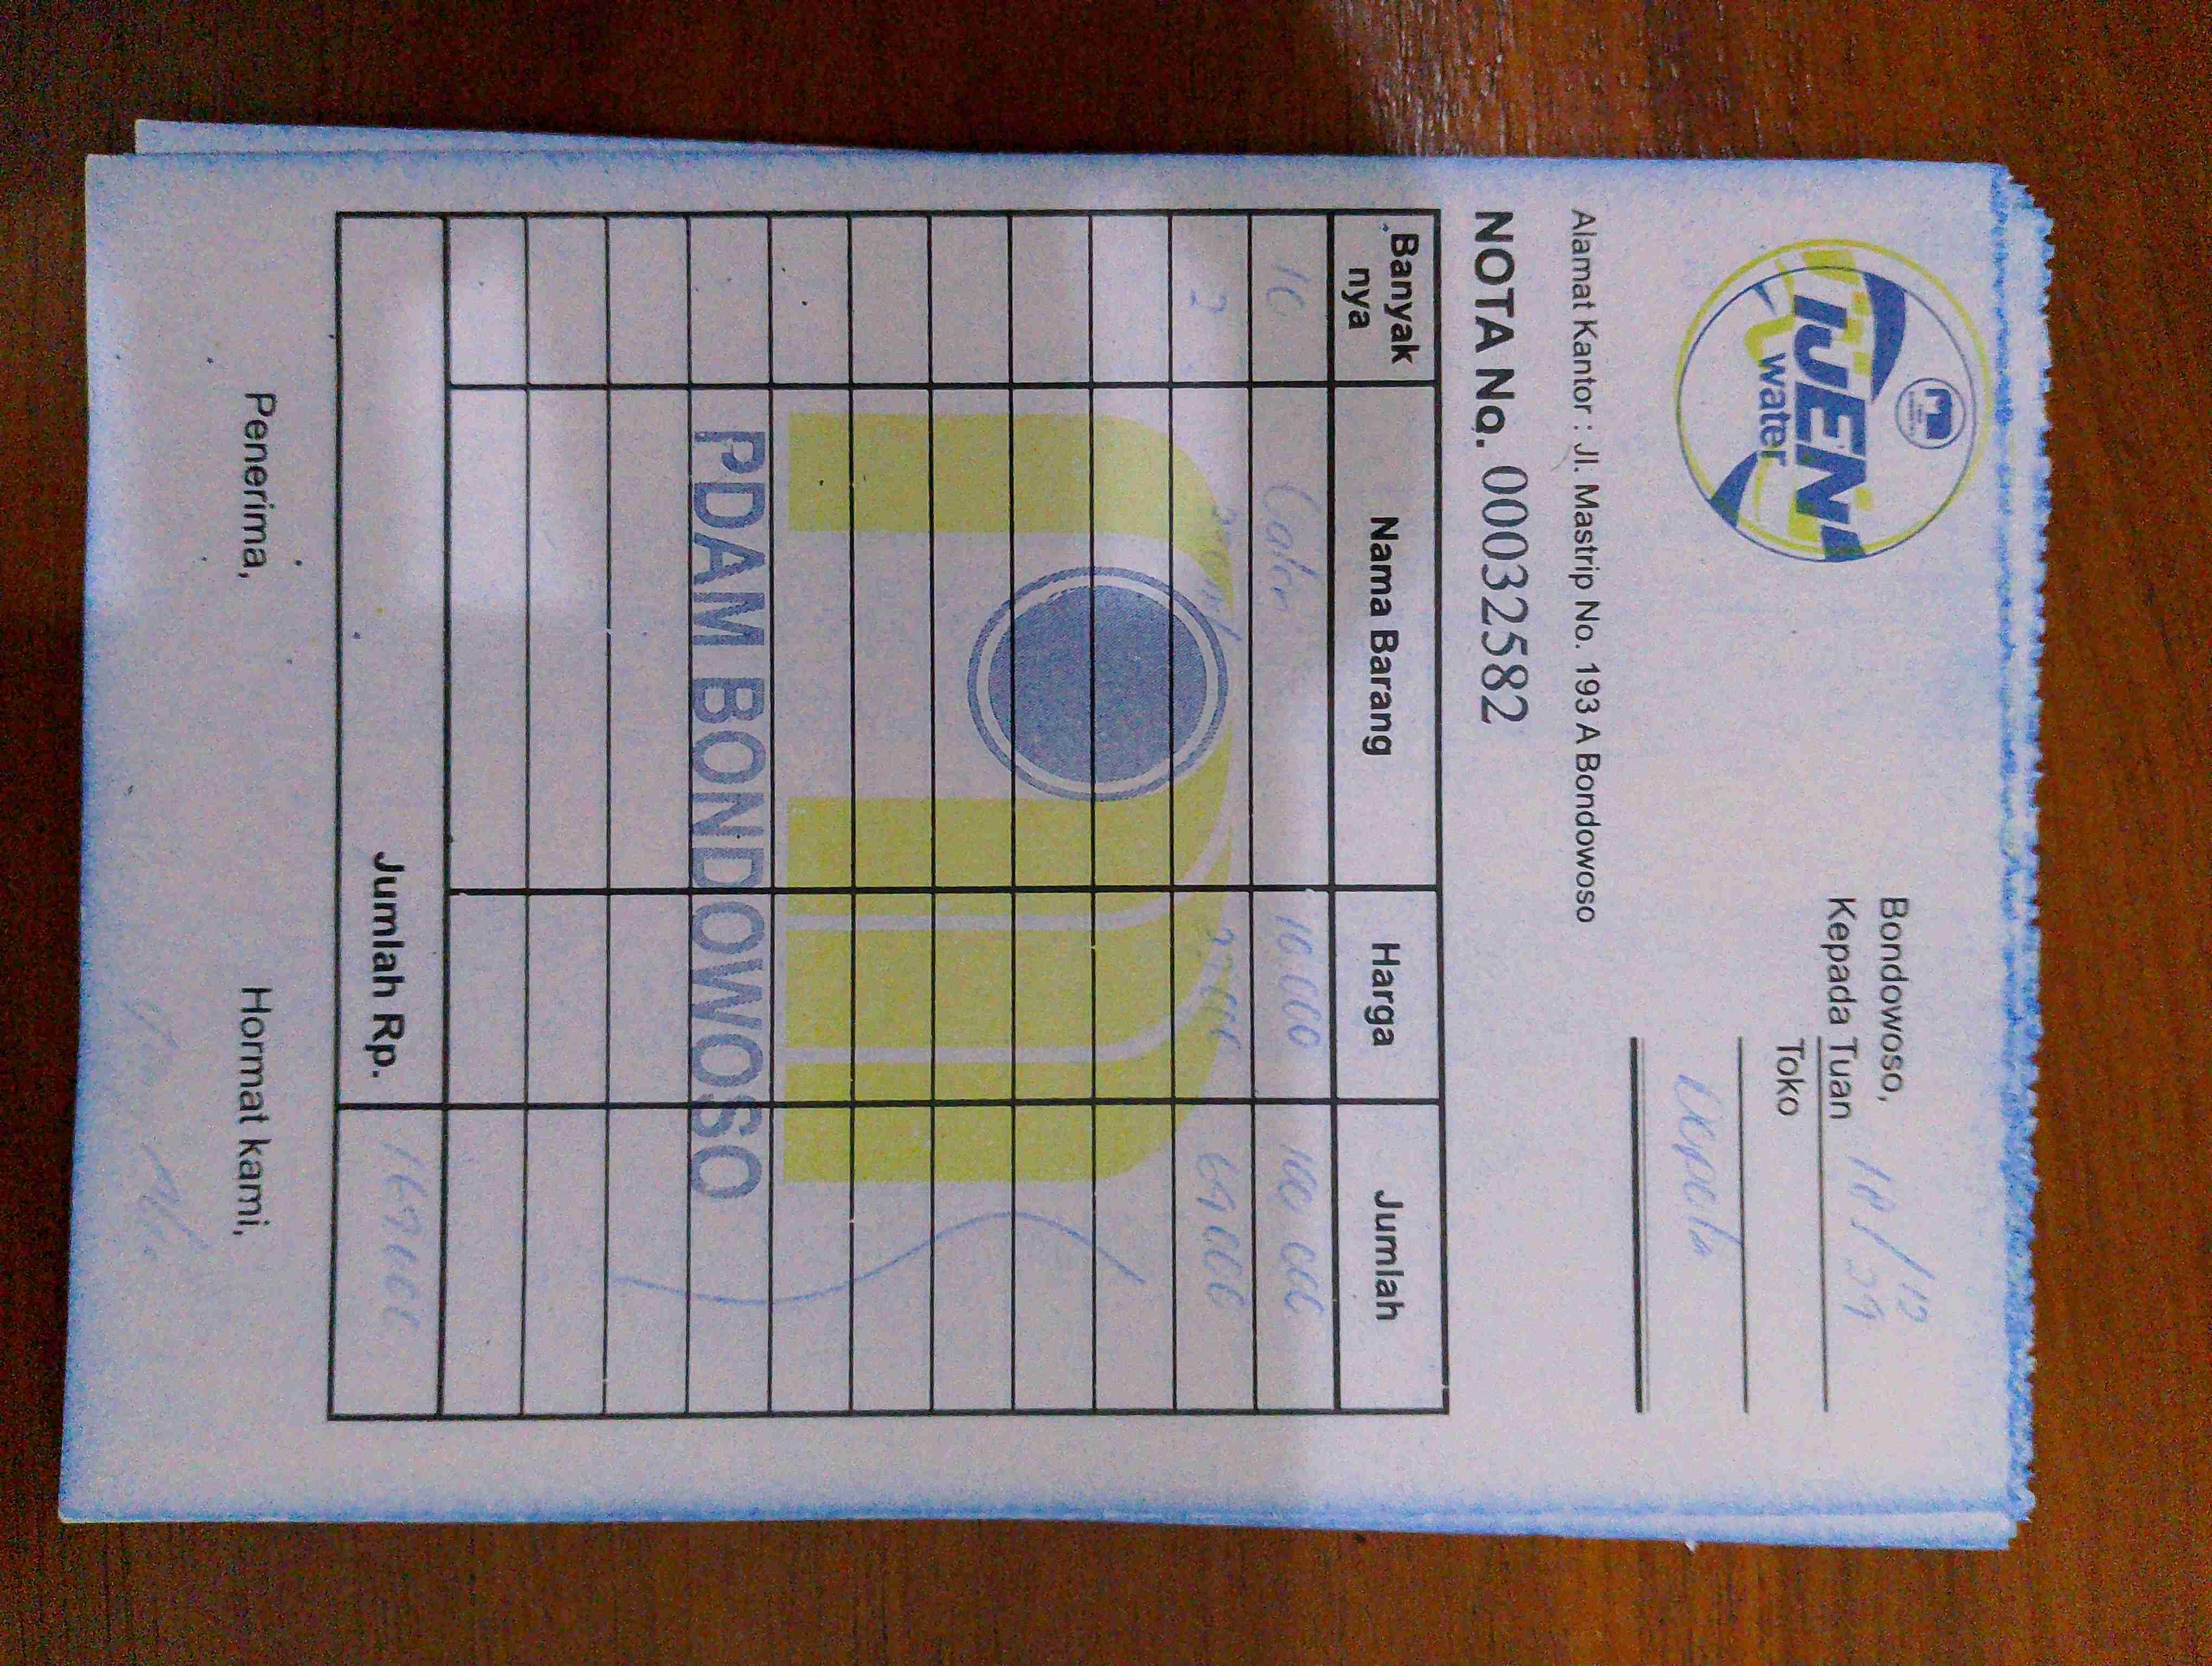 IJEN
water
Bondowoso, 18/10 24
Kepada Tuan
Toko
Alamat Kantor : Jl. Mastrip No. 193 A Bondowoso
NOTA No. 00032582
Banyak nya Nama Barang Harga Jumlah
10 Galon 10.000 100.000
2
PDAM BONDOWOSO
Jumlah Rp.
Penerima, Hormat kami,